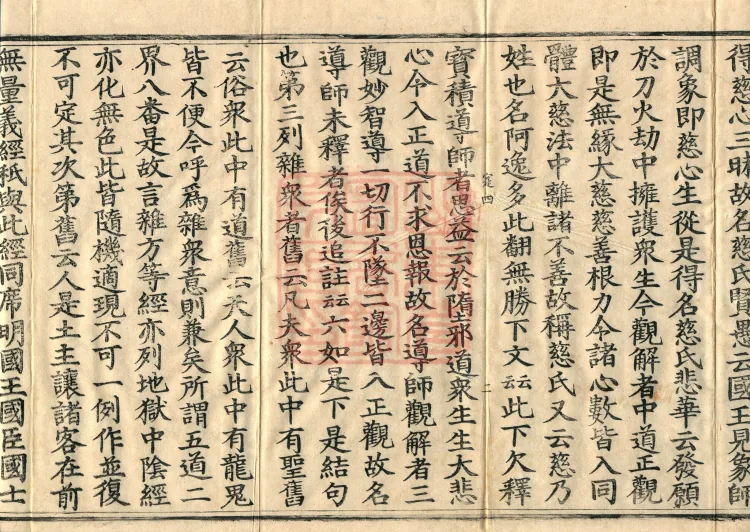 得慈心三昧故名慈氏賢愚云國王見象師
調象即慈心生從是得名慈氏悲華云發願
於刀火劫中擁護衆生今觀解者中道正觀
即是無緣大慈慈善根力令諸心數皆入同
體大慈法中離諸不善故稱慈氏又云慈乃
姓也名阿逸多此翻無勝下文云云此下欠釋
寶積導師者思益云於隋邪道衆生生大悲
心令入正道不求恩報故名導師觀解者三
觀妙智導一切行不墜二邊皆入正觀故名
導師未釋者俟後追註云云六如是下是結句
也第三列雜衆者舊云凡夫衆此中有聖舊
云俗衆此中有道舊云天人衆此中有龍鬼
皆不便今呼爲雜衆意則兼矣所謂五道二
界八番是故言雜方等經亦列地獄中陰經
亦化無色此皆隨機適現不可一例作並復
不可定其次第舊云人是土主讓諸客在前
無量義經秖與此經同席明國王國臣國士